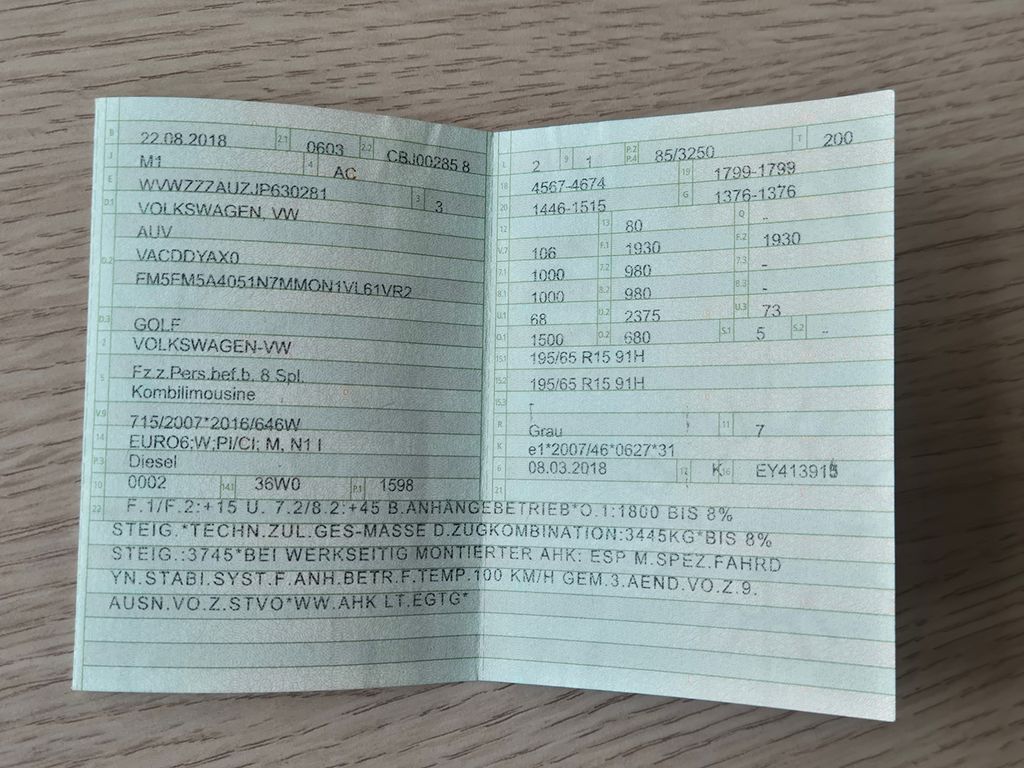 B 22.08.2018 2.1 0603 2.2 CBJ00285 8
J M1 4 AC
E WVWZZZAUZJP630281 3 3
D.1 VOLKSWAGEN, VW
AUV
D.2 VACDDYAX0
FM5FM5A4051N7MMON1VL61VR2
D.3 GOLF
2 VOLKSWAGEN-VW
5 Fz.z.Pers.bef.b. 8 Spl.
Kombilimousine
V.9 715/2007*2016/646W
14 EURO6;W;PI/CI; M, N1 I
P.3 Diesel
10 0002 14.1 36W0 P.1 1598
L 2 9 1 P.2 P.4 85/3250 T 200
18 4567-4674 19 1799-1799
20 1446-1515 G 1376-1376
12 13 80 Q -
V.7 106 F.1 1930 F.2 1930
7.1 1000 7.2 980 7.3 -
8.1 1000 8.2 980 8.3 -
U.1 68 U.2 2375 U.3 73
O.1 1500 O.2 680 S.1 5 S.2 -
15.1 195/65 R15 91H
15.2 195/65 R15 91H
15.3
R Grau 11 7
K e1*2007/46*0627*31
6 08.03.2018 17 K 16 EY413915
21
22 F.1/F.2:+15 U. 7.2/8.2:+45 B.ANHÄNGEBETRIEB*O.1:1800 BIS 8%
STEIG.*TECHN.ZUL.GES-MASSE D.ZUGKOMBINATION:3445KG*BIS 8%
STEIG.:3745*BEI WERKSEITIG MONTIERTER AHK: ESP M.SPEZ.FAHRD
YN.STABI.SYST.F.ANH.BETR.F.TEMP.100 KM/H GEM.3.AEND.VO.Z.9.
AUSN.VO.Z.STVO*WW.AHK LT.EGTG*